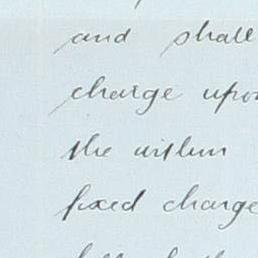 and shall
charge upon
the within
fixed charge